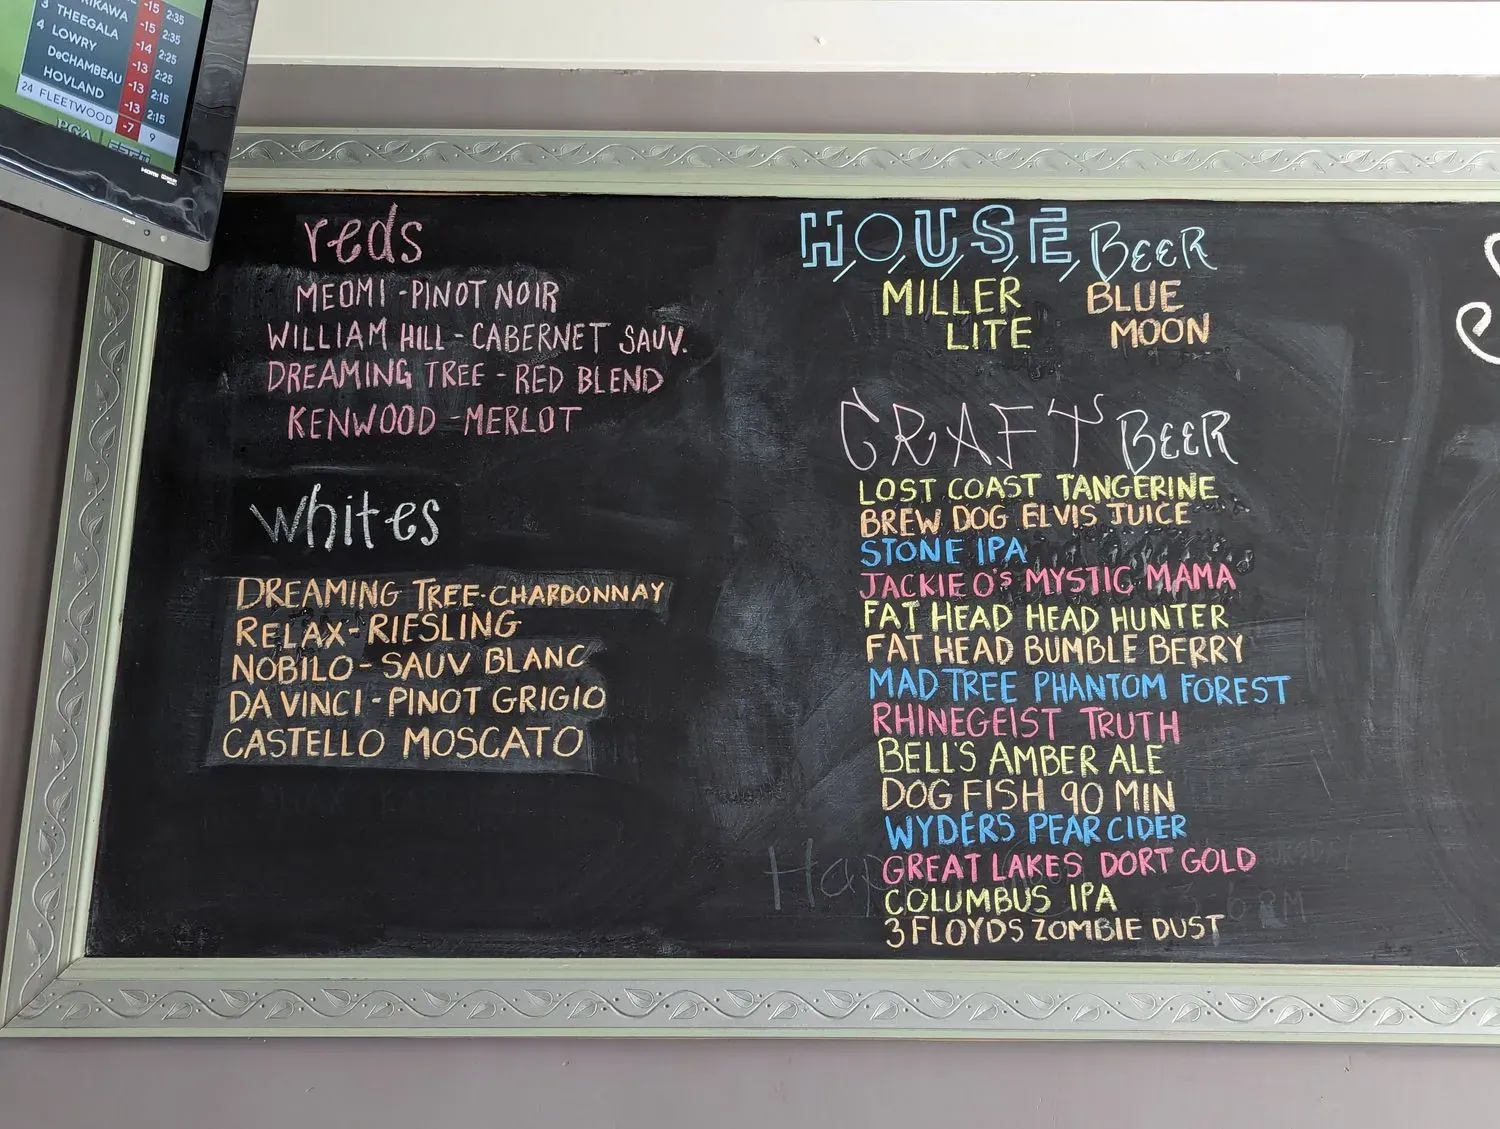 RIKAWA -15 2:35
3 THEEGALA -15 2:35
4 LOWRY -14 2:25
DeCHAMBEAU -13 2:25
HOVLAND -13 2:15
-13 2:15
24 FLEETWOOD -7 9
PGA ESPN
HDMI
POWER
reds
MEOMI - PINOT NOIR
WILLIAM HILL - CABERNET SAUV.
DREAMING TREE - RED BLEND
KENWOOD - MERLOT
whites
DREAMING TREE - CHARDONNAY
RELAX - RIESLING
NOBILO - SAUV BLANC
DA VINCI - PINOT GRIGIO
CASTELLO MOSCATO
HOUSE BEER
MILLER LITE
BLUE MOON
CRAFT BEER
LOST COAST TANGERINE
BREW DOG ELVIS JUICE
STONE IPA
JACKIE O'S MYSTIC MAMA
FAT HEAD HEAD HUNTER
FAT HEAD BUMBLE BERRY
MAD TREE PHANTOM FOREST
RHINEGEIST TRUTH
BELL'S AMBER ALE
DOG FISH 90 MIN
WYDERS PEAR CIDER
GREAT LAKES DORT GOLD
COLUMBUS IPA
3 FLOYDS ZOMBIE DUST